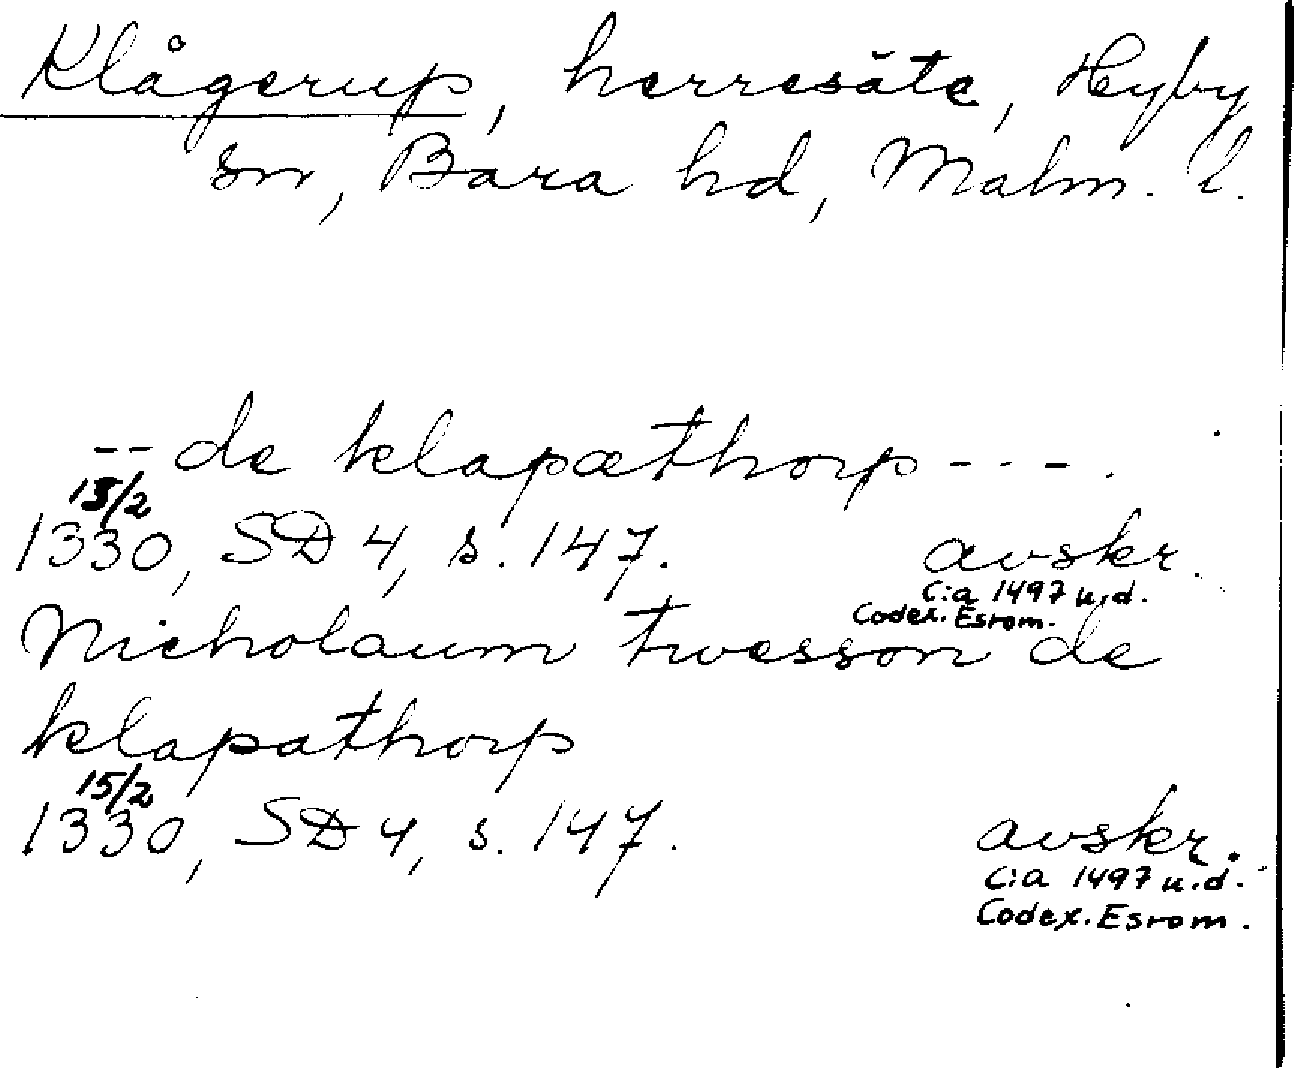 Klågerup, herresäte, Hyby
sn, Bara hd, Malm. l.
-- de klapæthorp ---.
15/2
1330, SD 4, s. 147. avskr.
c:a 1497 u.d.
Codex. Esrom.
Nicholaum twesson de
klapathorp
15/2
1330, SD 4, s. 147. avskr.
c:a 1497 u.d.
Codex. Esrom.